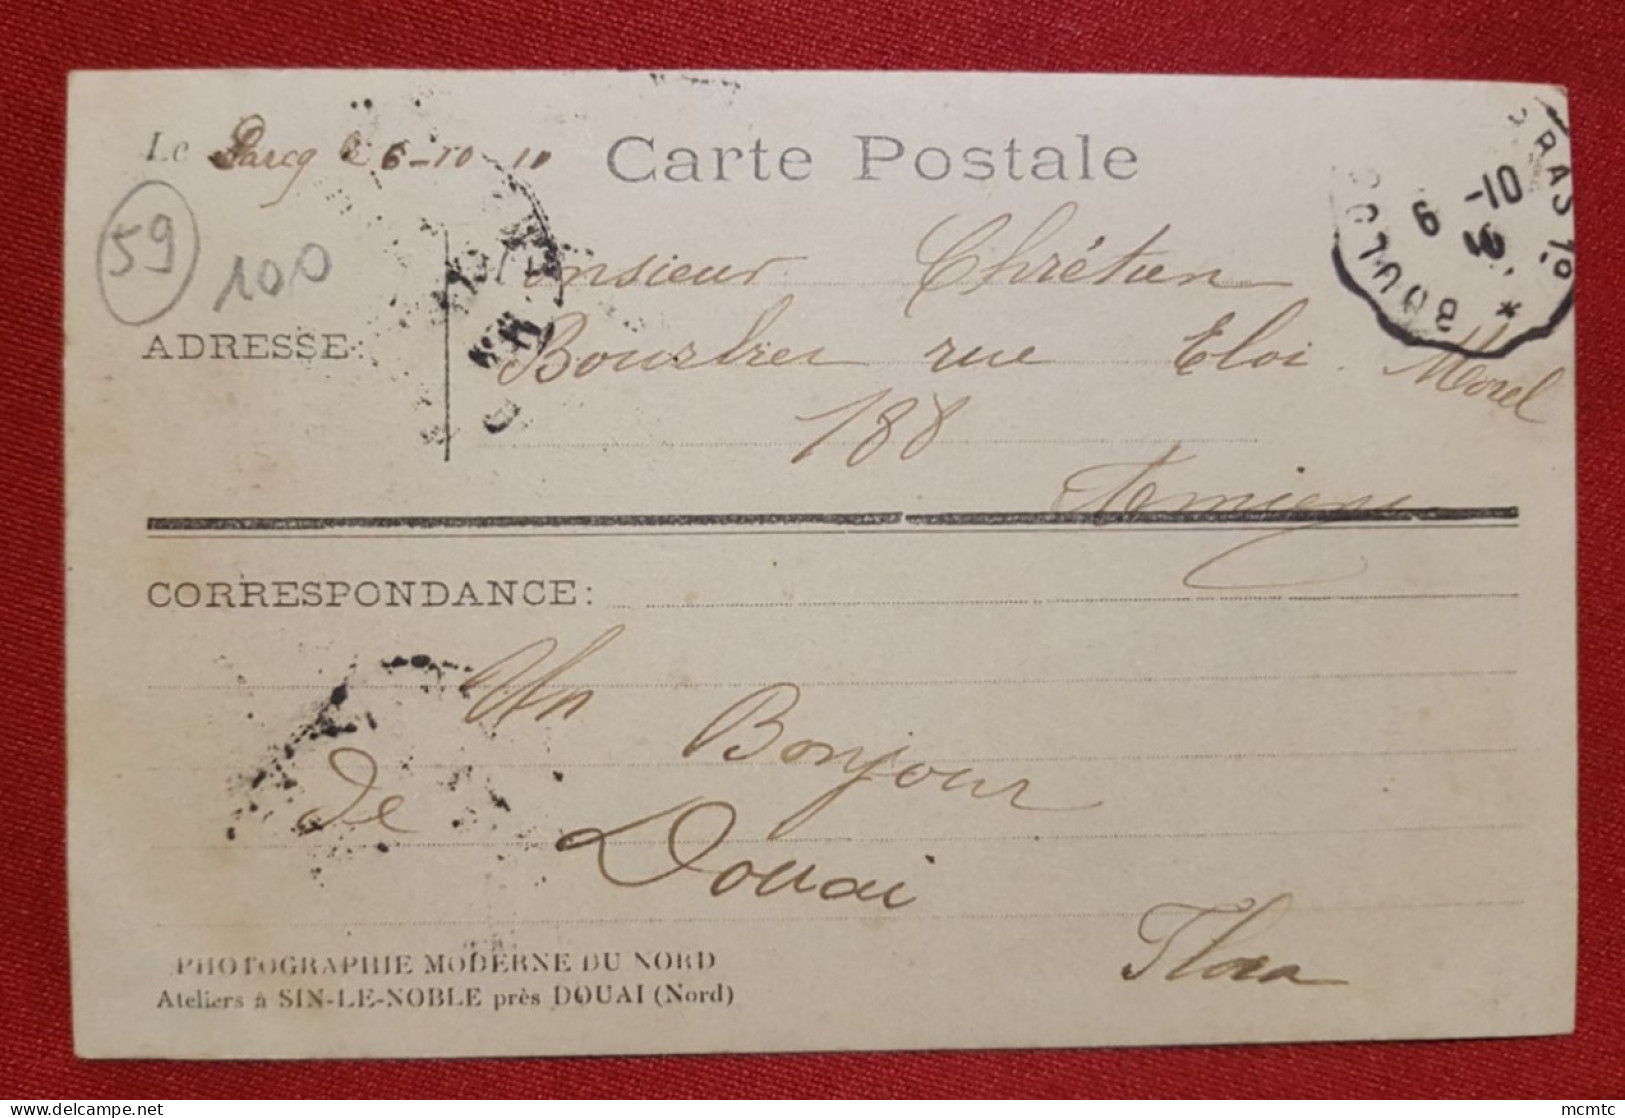 Le Parcq le 6-10 10
Carte Postale
59
100
ADRESSE:
Monsieur Chrétien
Bourlier rue Eloi Morel
188
Amiens
6 -10
BOULOG
RAS 1°
CORRESPONDANCE:
Un Bonjour
de Douai
Flora
PHOTOGRAPHIE MODERNE DU NORD
Ateliers à SIN-LE-NOBLE près DOUAI (Nord)
mcmtc